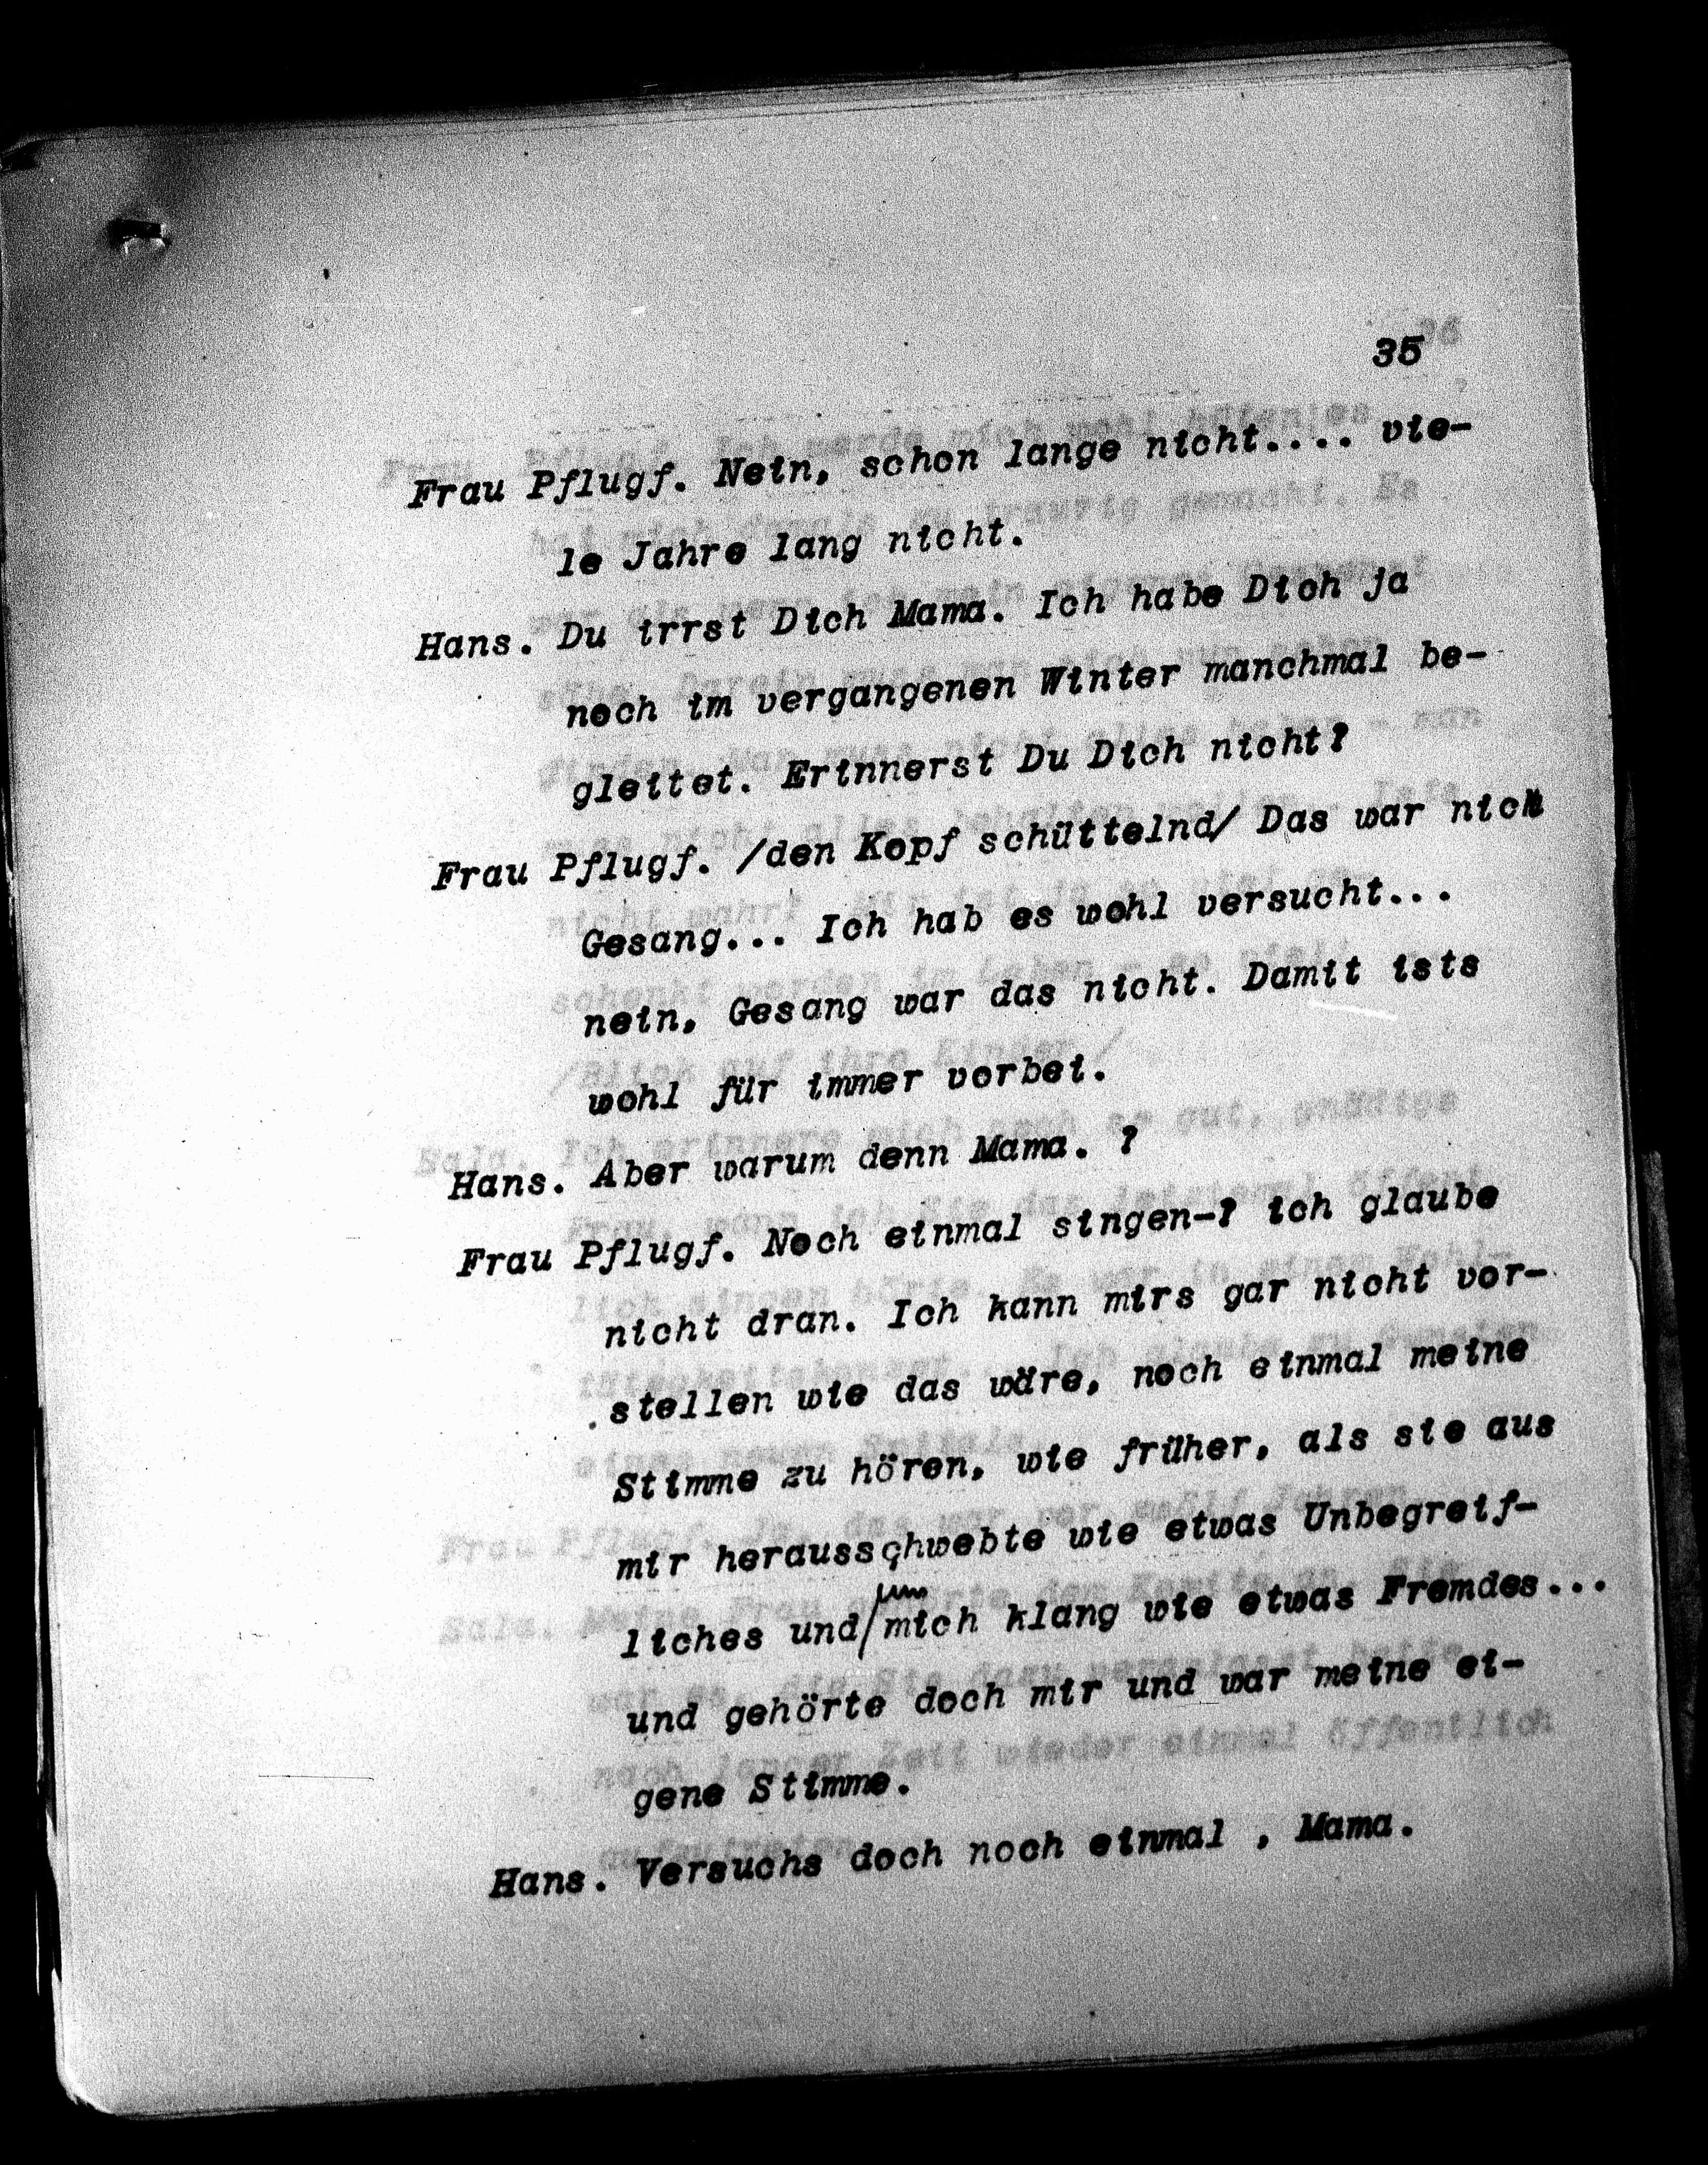 35
Frau Pflugf. Nein, schon lange nicht.... vie-
le Jahre lang nicht.
Hans. Du irrst Dich Mama. Ich habe Dich ja
noch im vergangenen Winter manchmal be-
gleitet. Erinnerst Du Dich nicht?
Frau Pflugf. /den Kopf schüttelnd/ Das war nicht
Gesang... Ich hab es wohl versucht...
nein, Gesang war das nicht. Damit ists
wohl für immer vorbei.
Hans. Aber warum denn Mama. ?
Frau Pflugf. Noch einmal singen-? ich glaube
nicht dran. Ich kann mirs gar nicht vor-
stellen wie das wäre, noch einmal meine
Stimme zu hören, wie früher, als sie aus
mir herausschwebte wie etwas Unbegreif-
um
liches und/mich klang wie etwas Fremdes...
und gehörte doch mir und war meine ei-
gene Stimme.
Hans. Versuchs doch noch einmal , Mama.